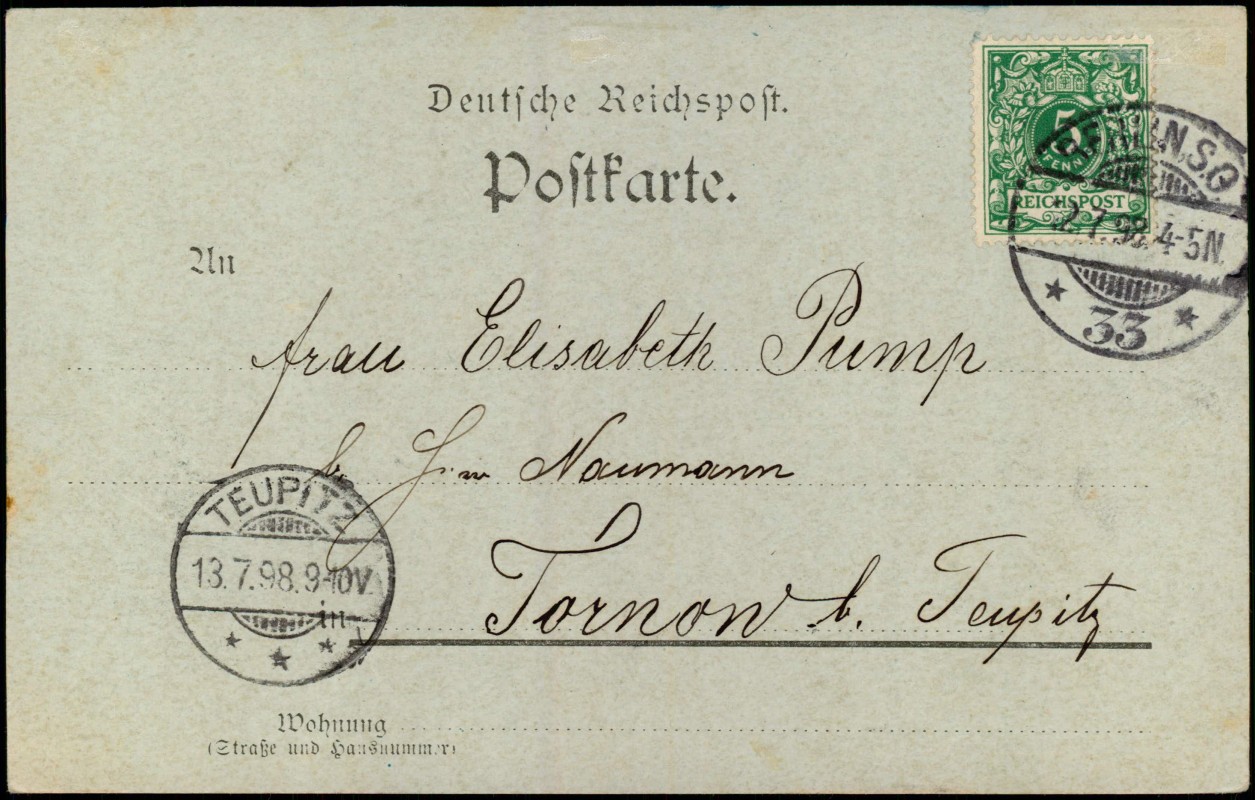 Deutsche Reichspost.
Postkarte.
5
PFENNIG
REICHSPOST
BERLIN, S.O.
12.7.98. 4-5N.
33
An
Frau Elisabeth Pump
b. Hrn Naumann
TEUPITZ
13.7.98. 9-10V.
in
Tornow b. Teupitz
Wohnung
(Straße und Hausnummer)